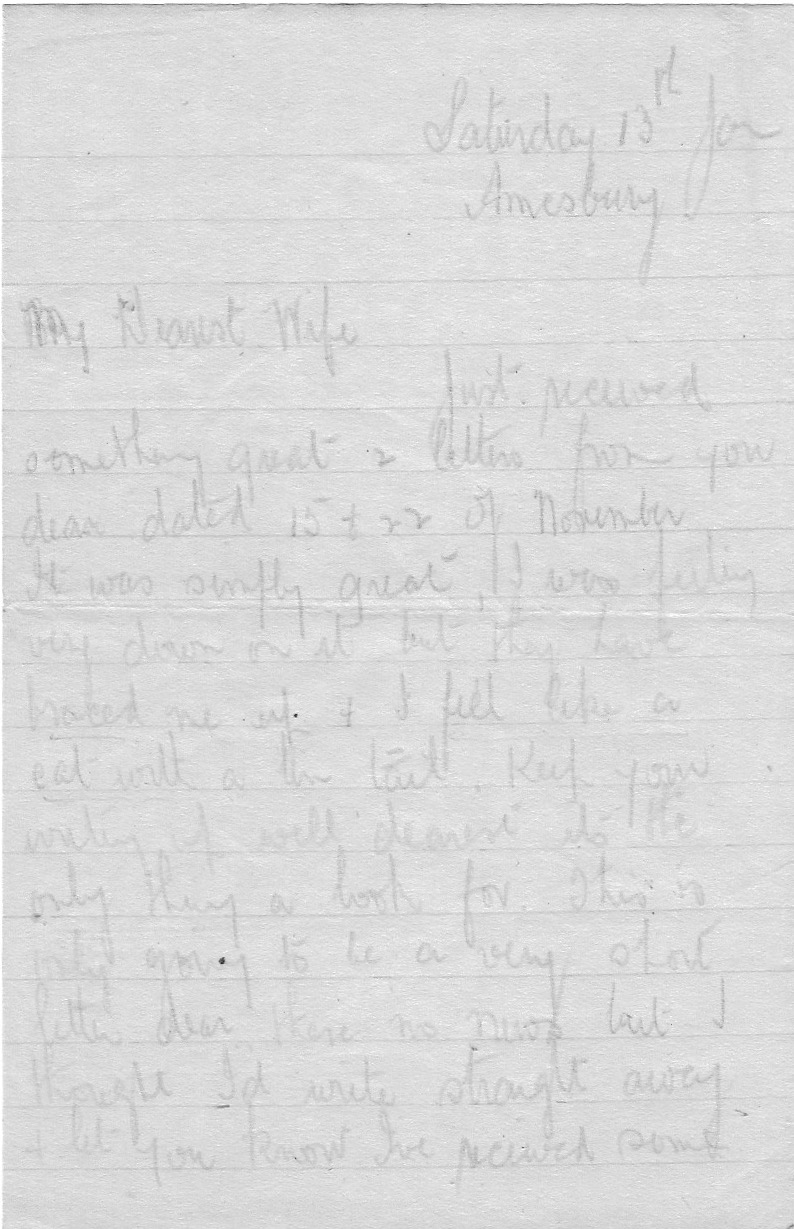 Saturday 13th Jan
Amesbury
My Dearest Wife
Just received
something great 2 letters from you
dear dated 15 + 22 of November
It was simply great, I was feeling
very down on it but they have
braced me up + I feel like a
cat with a tin tail. Keep your
writing up well dearest its the
only thing a look for. This is
only going to be a very short
letter dear, there no news but I
thought I'd write straight away
+ let you know I've received some